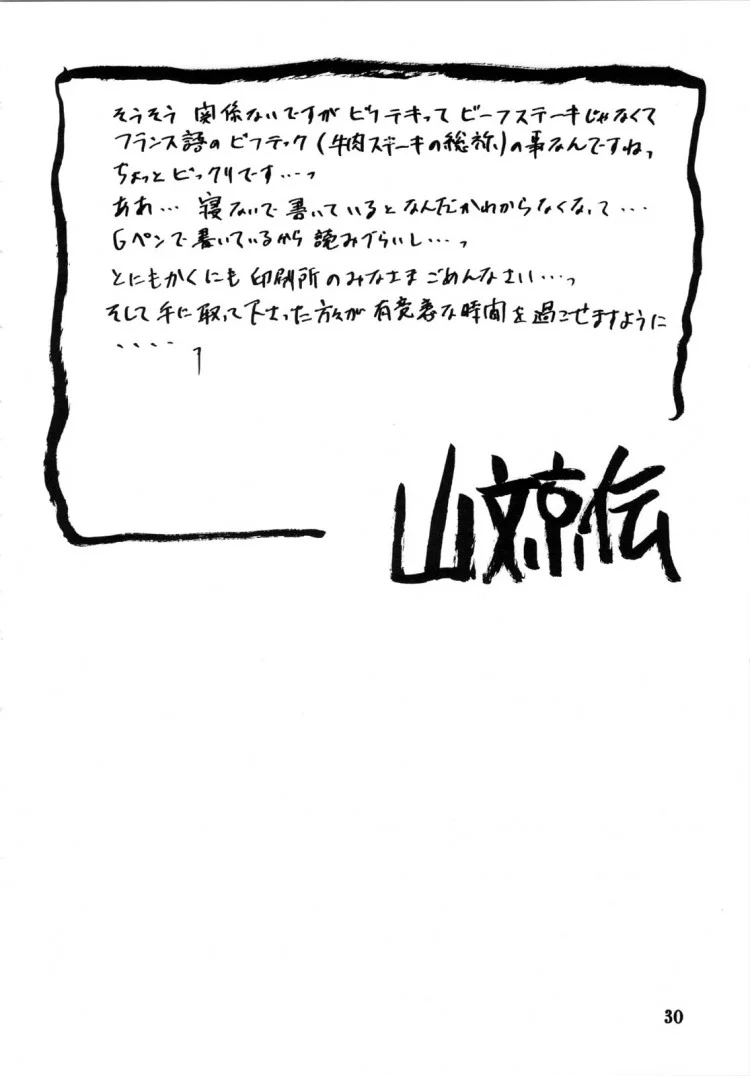 そうそう 関係ないですが ビフテキって ビーフステーキじゃなくて
フランス語の ビフテック(牛肉ステーキの総称)の事なんですねっ
ちょっと ビックリです…っ
ああ… 寝ないで書いていると なんだかわからなくなって…
Gペンで書いているから 読みづらいし…っ
とにもかくにも 印刷所のみなさま ごめんなさい…っ
そして 手に取って下さった方々が 有意義な時間を過ごせますように
‥‥
山文京伝
30